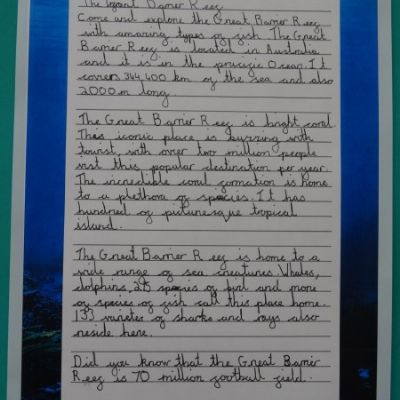 The Great Barrier Reef
Come and explore the Great Barrier Reef
with amazing types of fish. The Great
Barrier Reef is located in Australia
and it is in the pacific Ocean. It
covers 344,400 km of the sea and also
2000 m long.
The Great Barrier Reef is bright coral.
This iconic place is buzzing with
tourist, with over two million people
visit this popular destination per year.
The incredible coral formation is home
to a plethora of species. It has
hundred of picturesque tropical
island.
The Great Barrier Reef is home to a
wide range of sea creatures Whales,
dolphins, 215 species of bird and more
of species of fish call this place home.
133 varieties of sharks and rays also
reside here.
Did you know that the Great Barrier
Reef is 70 million football field.